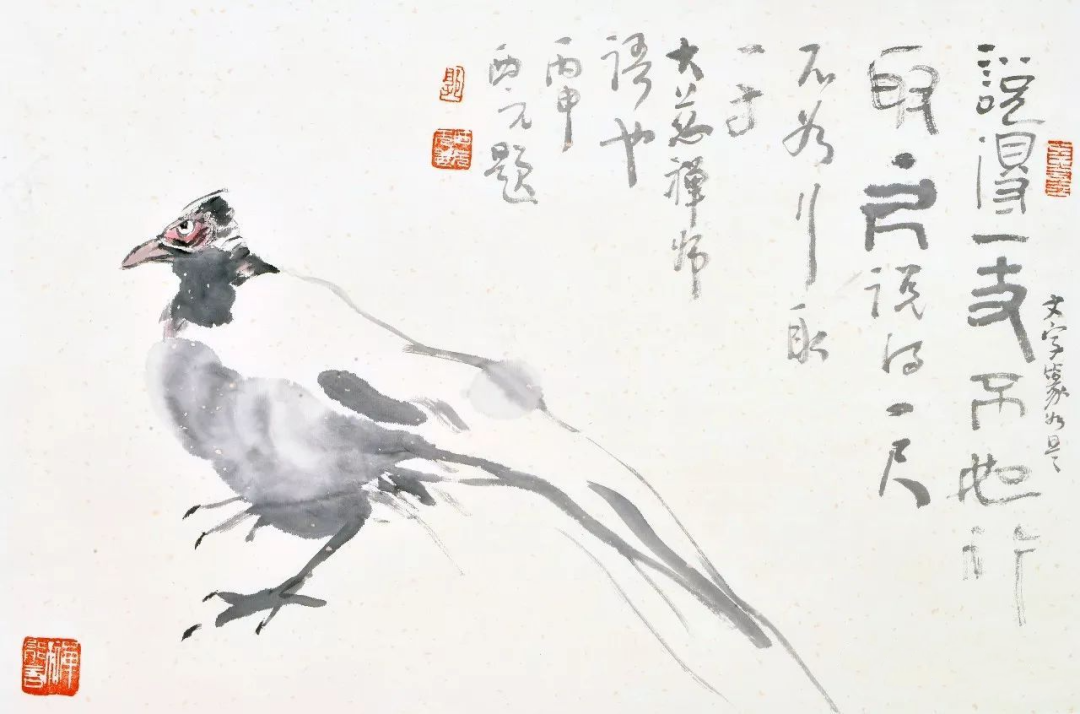 說得一丈不如行
取一尺說得一尺
不如行取
一寸
大慈禪師
語也
丙申
西元題
文字